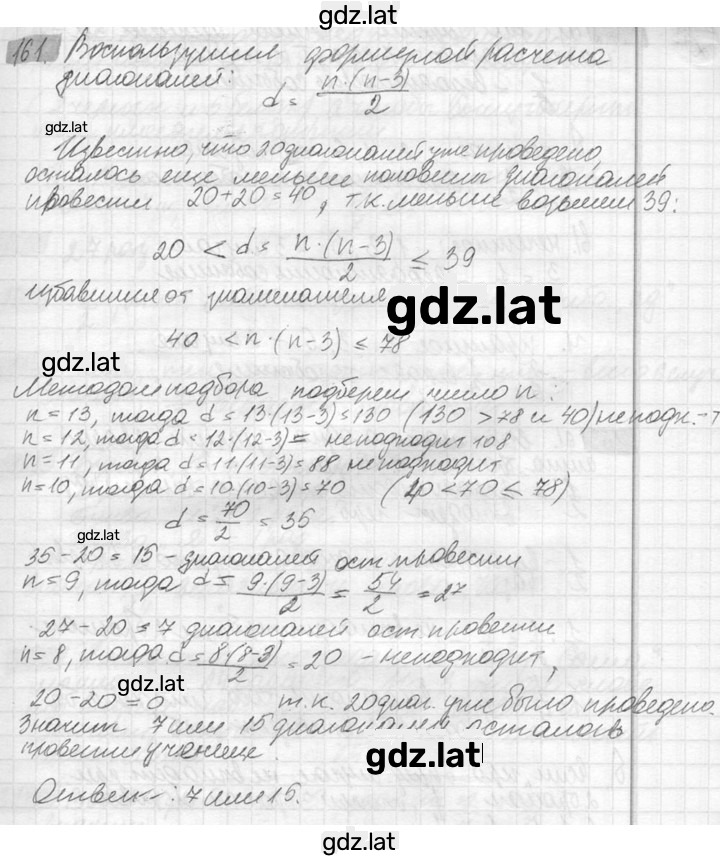 gdz.lat
161. Воспользуемся формулой расчета
диагоналей: d = n·(n-3)/2
gdz.lat
gdz.lat
Известно, что 20 диагоналей уже проведено,
осталось еще меньше половины диагоналей
провести 20+20=40, т.к. меньше возьмем 39:
20 < d = n·(n-3)/2 ≤ 39
избавимся от знаменателя
gdz.lat
40 < n·(n-3) ≤ 78
gdz.lat
Методом подбора подберем число n:
n=13, тогда d=13·(13-3)=130 (130 >78 и 40) не подх.
n=12, тогда d=12·(12-3)= не подходит 108
n=11, тогда d=11·(11-3)=88 не подходит
n=10, тогда d=10(10-3)=70 (40<70≤78)
d = 70/2 = 35
gdz.lat
35-20=15 - диагоналей ост. провести
n=9, тогда d= 9·(9-3)/2 = 54/2 = 27
27-20=7 диагоналей ост. провести
n=8, тогда d= 8(8-3)/2 = 20 - не подходит,
gdz.lat
20-20=0 т.к. 20 диаг. уже было проведено.
Значит 7 или 15 диагоналей осталось
провести учащие
gdz.lat
Ответ: 7 или 15.
gdz.lat